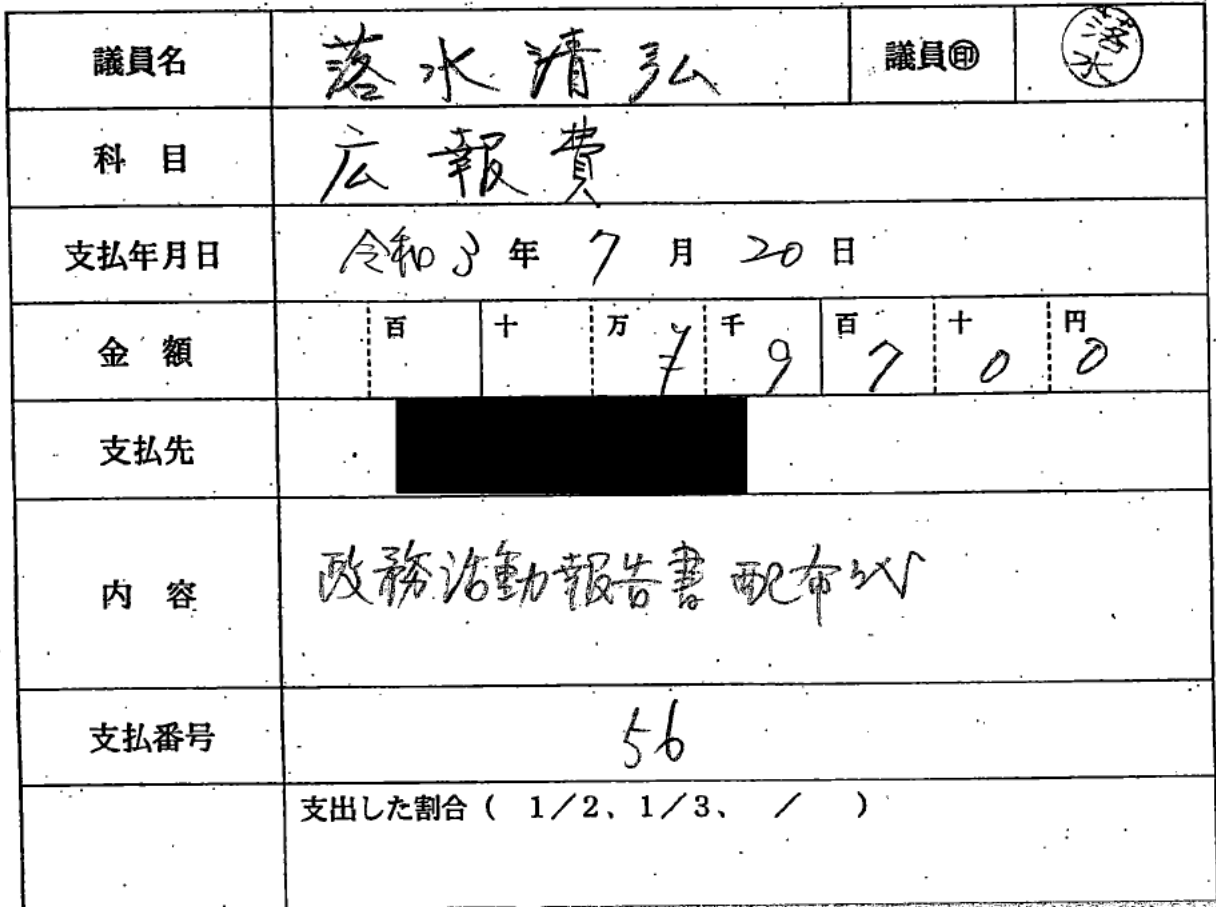 議員名 落水清弘 議員㊞ 落水
科 目 広報費
支払年月日 令和3年7月20日
金 額 百 十 万 千 9 百 7 十 0 円 0
支払先
内 容 政務活動報告書配布代
支払番号 56
支出した割合( 1/2、1/3、 / )